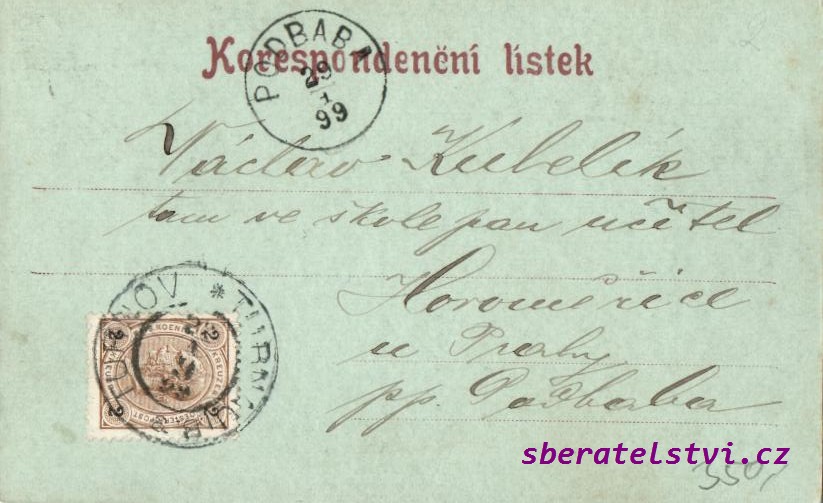 Korespondenční lístek
PODBABA
99
Václav Kubelík
tam ve škole pan učitel
Horoměřice
u Prahy
pp. Podbaba
TURNOV * TURNAU
2 2
KREUZER
2 2
sberatelstvi.cz
350,